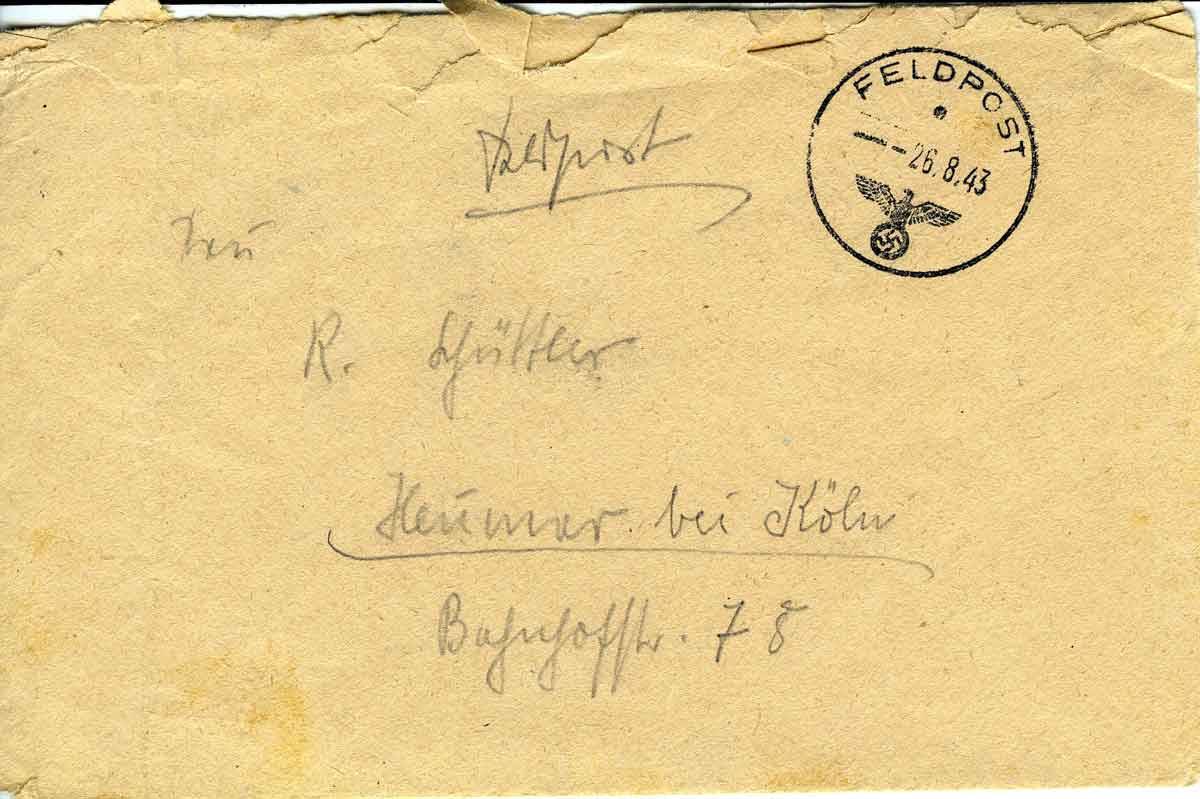 FELDPOST
26.8.43
Feldpost
Frau
R. Schüttler
Heumar bei Köln
Bahnhofstr. 78